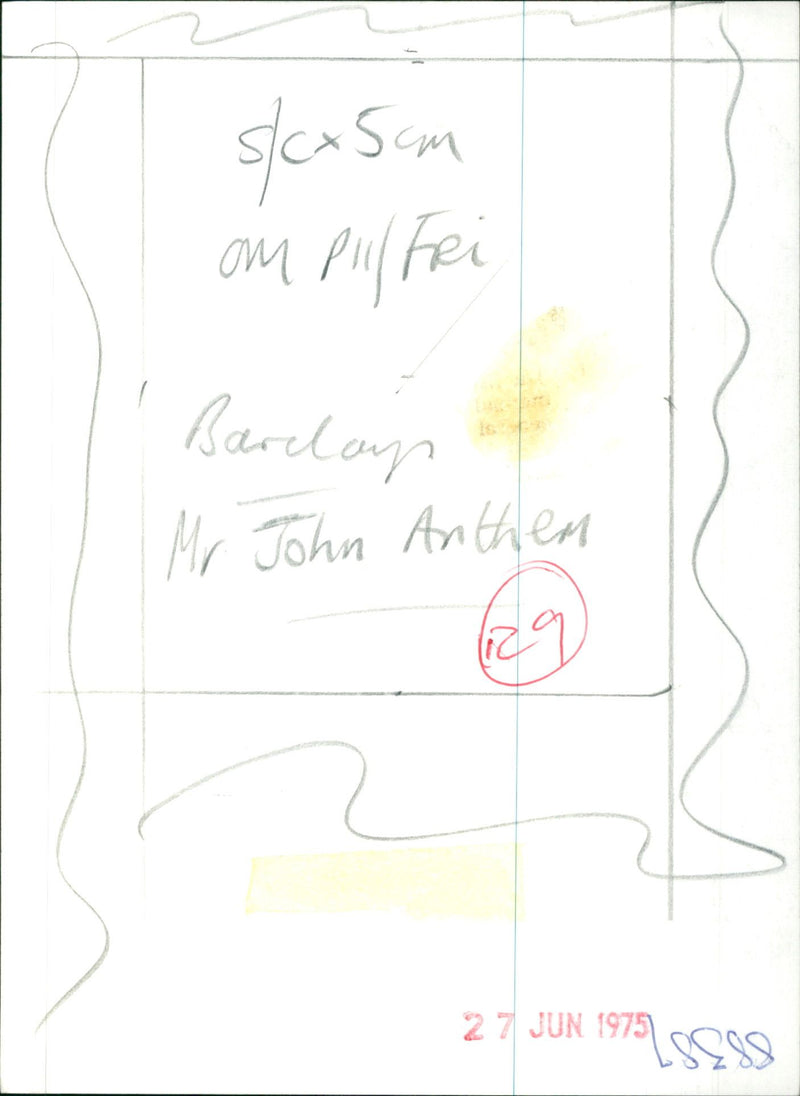 s/c x 5cm
OM P11/FRI
Barclays
Mr John Anthem
27 JUN 1975